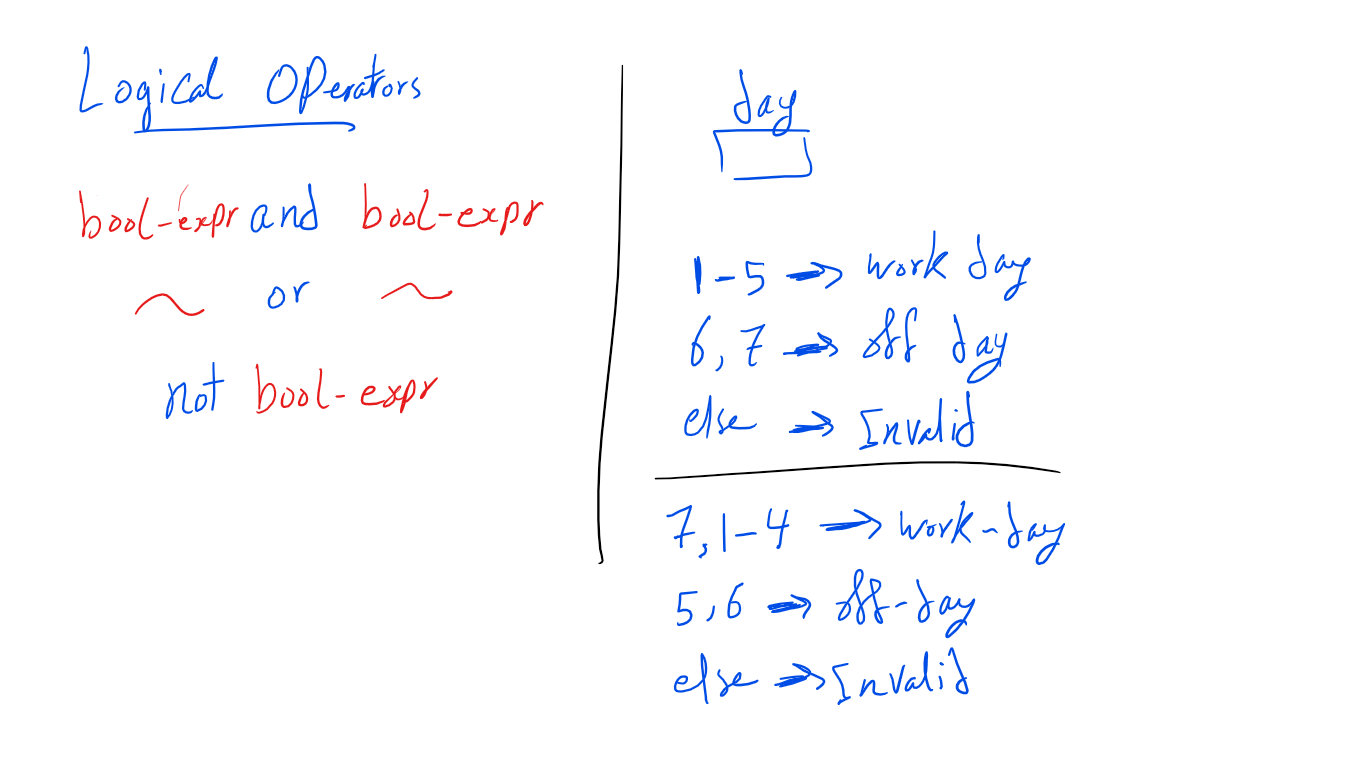 Logical Operators
bool-expr and bool-expr
~ or ~
not bool-expr
day
1-5 → work day
6, 7 → off day
else → Invalid
7, 1-4 → work-day
5, 6 → off-day
else → Invalid